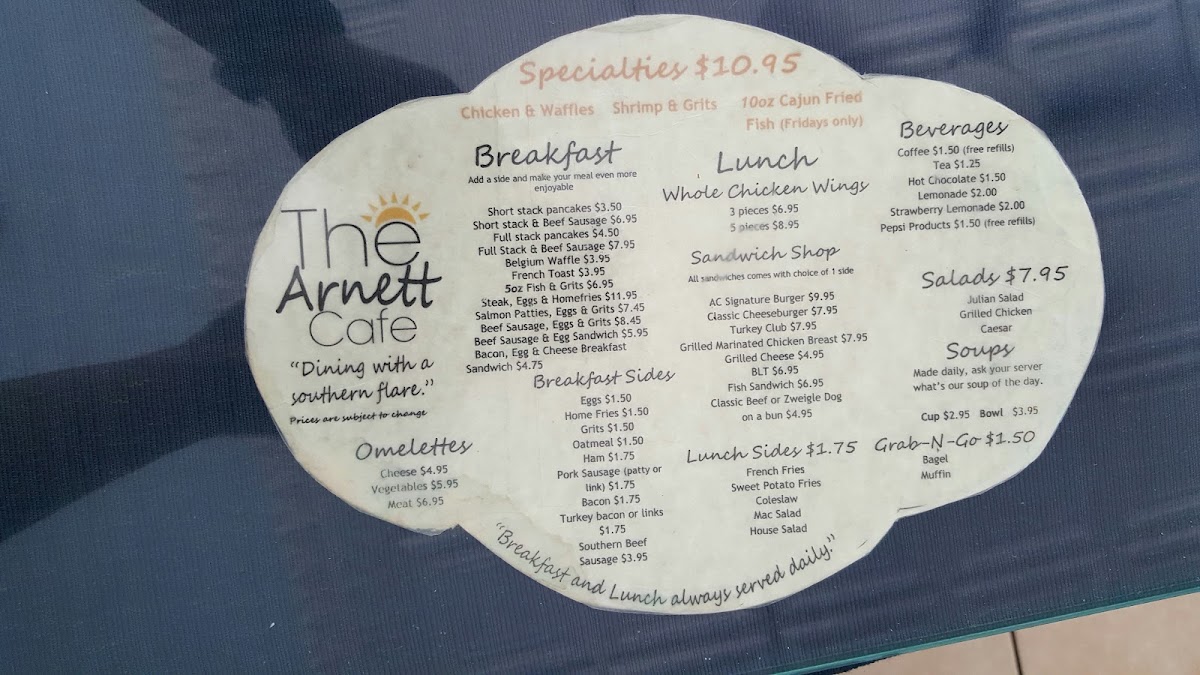 Specialties $10.95
Chicken & Waffles Shrimp & Grits 10oz Cajun Fried
Fish (Fridays only)
The
Arnett
Cafe
"Dining with a
southern flare."
Prices are subject to change
Omelettes
Cheese $4.95
Vegetables $5.95
Meat $6.95
Breakfast
Add a side and make your meal even more
enjoyable
Short stack pancakes $3.50
Short stack & Beef Sausage $6.95
Full stack pancakes $4.50
Full Stack & Beef Sausage $7.95
Belgium Waffle $3.95
French Toast $3.95
5oz Fish & Grits $6.95
Steak, Eggs & Homefries $11.95
Salmon Patties, Eggs & Grits $7.45
Beef Sausage, Eggs & Grits $8.45
Beef Sausage & Egg Sandwich $5.95
Bacon, Egg & Cheese Breakfast
Sandwich $4.75
Breakfast Sides
Eggs $1.50
Home Fries $1.50
Grits $1.50
Oatmeal $1.50
Ham $1.75
Pork Sausage (patty or
link) $1.75
Bacon $1.75
Turkey bacon or links
$1.75
Southern Beef
Sausage $3.95
Lunch
Whole Chicken Wings
3 pieces $6.95
5 pieces $8.95
Sandwich Shop
All sandwiches comes with choice of 1 side
AC Signature Burger $9.95
Classic Cheeseburger $7.95
Turkey Club $7.95
Grilled Marinated Chicken Breast $7.95
Grilled Cheese $4.95
BLT $6.95
Fish Sandwich $6.95
Classic Beef or Zweigle Dog
on a bun $4.95
Lunch Sides $1.75
French Fries
Sweet Potato Fries
Coleslaw
Mac Salad
House Salad
Beverages
Coffee $1.50 (free refills)
Tea $1.25
Hot Chocolate $1.50
Lemonade $2.00
Strawberry Lemonade $2.00
Pepsi Products $1.50 (free refills)
Salads $7.95
Julian Salad
Grilled Chicken
Caesar
Soups
Made daily, ask your server
what's our soup of the day.
Cup $2.95 Bowl $3.95
Grab-N-Go $1.50
Bagel
Muffin
"Breakfast and Lunch always served daily."